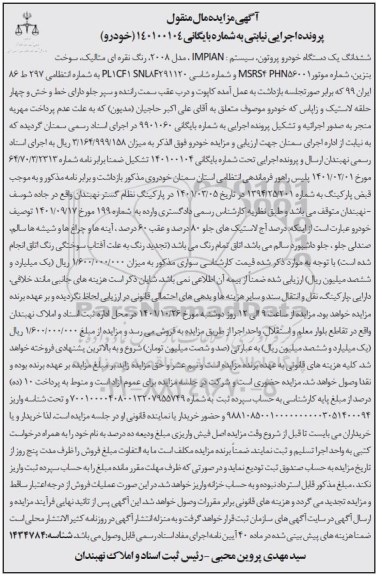 آگهی مزایده مال منقول
پرونده اجرایی نیابتی به شماره بایگانی ۱۴۰۱۰۰۱۰۴ (خودرو)
ششدانگ یک دستگاه خودرو پروتون، سیستم: IMPIAN، مدل ۲۰۰۸، رنگ نقره ای متالیک، سوخت
بنزین، شماره موتور MSRS۴ PHN۵۶۰۰۱ و شماره شاسی PL۱CF۱ SNLAF۲۹۱۱۲۰ به شماره انتظامی ۲۹۷ ط ۸۶
ایران ۹۹ که برابر صورتجلسه بازداشت به عمل آمده کاپوت و درب عقب سمت راننده و سپر جلو دارای خط و خش و چهار
حلقه لاستیک و زاپاس که خودرو موصوف متعلق به آقای علی اکبر حاجیان (مدیون) که به علت عدم پرداخت مهریه
منجر به صدور اجرائیه و تشکیل پرونده اجرایی به شماره بایگانی ۹۹۰۱۰۶۰ در اجرای اسناد رسمی سمنان گردیده که
به نیابت از اداره اجرای سمنان جهت ارزیابی و مزایده خودرو فوق الذکر به میزان ۳/۱۶۴/۹۹۹/۱۵۸ ریال به اجرای اسناد
رسمی نهبندان ارسال و پرونده اجرایی تحت شماره بایگانی ۱۴۰۱۰۰۱۰۴ تشکیل ضمنا برابر نامه شماره ۶۴/۷۰/۲/۲۳۱۳
مورخ ۱۴۰۱/۰۲/۰۱ پلیس راهور فرماندهی انتظامی استان سمنان خودروی مذکور بازداشت و برابر نامه مذکور و به موجب
قبض پارکینگ به شماره ۱۳۹۴/۲۵/۲۰۱ در تاریخ ۱۴۰۱/۰۳/۰۵ در پارکینگ نظام گستر نهبندان واقع در جاده شوسف
-نهبندان متوقف می باشد و طبق نظریه کارشناس رسمی دادگستری وارده به شماره ۱۹۹ مورخ ۱۴۰۱/۰۹/۱۷ توصیف
خودرو عبارت است از اینکه، درصد آج لاستیک های جلو ۸۰ درصد و عقب ۶۰ درصد، آینه ها و چراغ ها و شیشه ها سالم،
صندلی جلو، جلو داشبورد سالم می باشد، اتاق تمام رنگ می باشد (تجدید رنگ به علت آفتاب سوختگی رنگ اتاق انجام
شده است) با توجه به موارد ذکر شده قیمت کارشناسی سواری مذکور به میزان ۱/۶۰۰/۰۰۰/۰۰۰ ریال (یک میلیارد و
ششصد میلیون ریال) ارزیابی شده ضمنا از بیمه آن اطلاعی نمی باشد، شایان ذکر است هزینه های جانبی مانند خلافی،
دارایی، پارکینگ، نقل و انتقال سند و سایر هزینه ها و بدهی های احتمالی قانونی در ارزیابی لحاظ نگردیده و بر عهده برنده
مزایده خواهد بود. مزایده از ساعت ۹ الی ۱۲ روز دوشنبه مورخ ۱۴۰۱/۱۰/۲۶ در محل اداره ثبت اسناد و املاک نهبندان
واقع در تقاطع بلوار معلم و استقلال، واحد اجرا از طریق مزایده به فروش می رسد و مزایده از مبلغ ۱/۶۰۰/۰۰۰/۰۰۰ ریال
(یک میلیارد و ششصد میلیون ریال) به عبارتی (صد و شصت میلیون تومان) شروع و به بالاترین پیشنهادی فروخته خواهد
شد. کلیه هزینه های قانونی به عهده برنده مزایده است و نیم عشر و حق مزایده زائد بر مبلغ مزایده بر عهده برنده بوده و
نقدا وصول خواهد شد. مزایده حضوری است و شرکت در جلسه مزایده برای عموم آزاد است و منوط به پرداخت ۱۰ (ده)
درصد از مبلغ پایه کارشناسی به حساب سپرده ثبت به شماره ۷۰۰۱۰۰۰۰۴۰۸۰۰۱۳۲۰۷۹۵۵۷۴۹ و تحت شناسه واریز
۹۸۸۱۰۸۵۰۰۱۰۰۰۰۰۰۰۰۰۰۰۳۰۵۱۴۰۰۰۹۴ و حضور خریدار یا نماینده قانونی او در جلسه مزایده است. لذا خریدار و یا
خریداران می بایست تا قبل از شروع وقت مزایده اصل فیش واریزی مبلغ ودیعه ده درصد به نام خود را به همراه درخواست
کتبی به واحد اجرا تسلیم و ثبت نمایند. ضمنا برنده مزایده مکلف است ما به التفاوت مبلغ فروش را ظرف مدت پنج روز از
تاریخ مزایده به حساب صندوق ثبت تودیع نماید و در صورتی که ظرف مهلت مقرر مانده مبلغ را به حساب سپرده ثبت واریز
نکند، مبلغ مذکور قابل استرداد نبوده و به حساب خزانه واریز خواهد شد. در این صورت عملیات فروش از درجه اعتبار ساقط
و مزایده تجدید می گردد و هزینه های قانونی برابر مقررات وصول خواهد شد. این آگهی پس از تائید نهایی فرآیند مزایده و
ارسال آگهی در سایت آگهی های سازمان ثبت قرار خواهد گرفت و به منزله انتشار آگهی در روزنامه کثیر الانتشار محلی است
ضمنا هزینه های پیش بینی شده در ماده ۴۰ آیین نامه اجرای مفاد اسناد رسمی قابل وصول می باشد. شناسه: ۱۴۳۴۷۸۴
سید مهدی پروین محبی - رئیس ثبت اسناد و املاک نهبندان